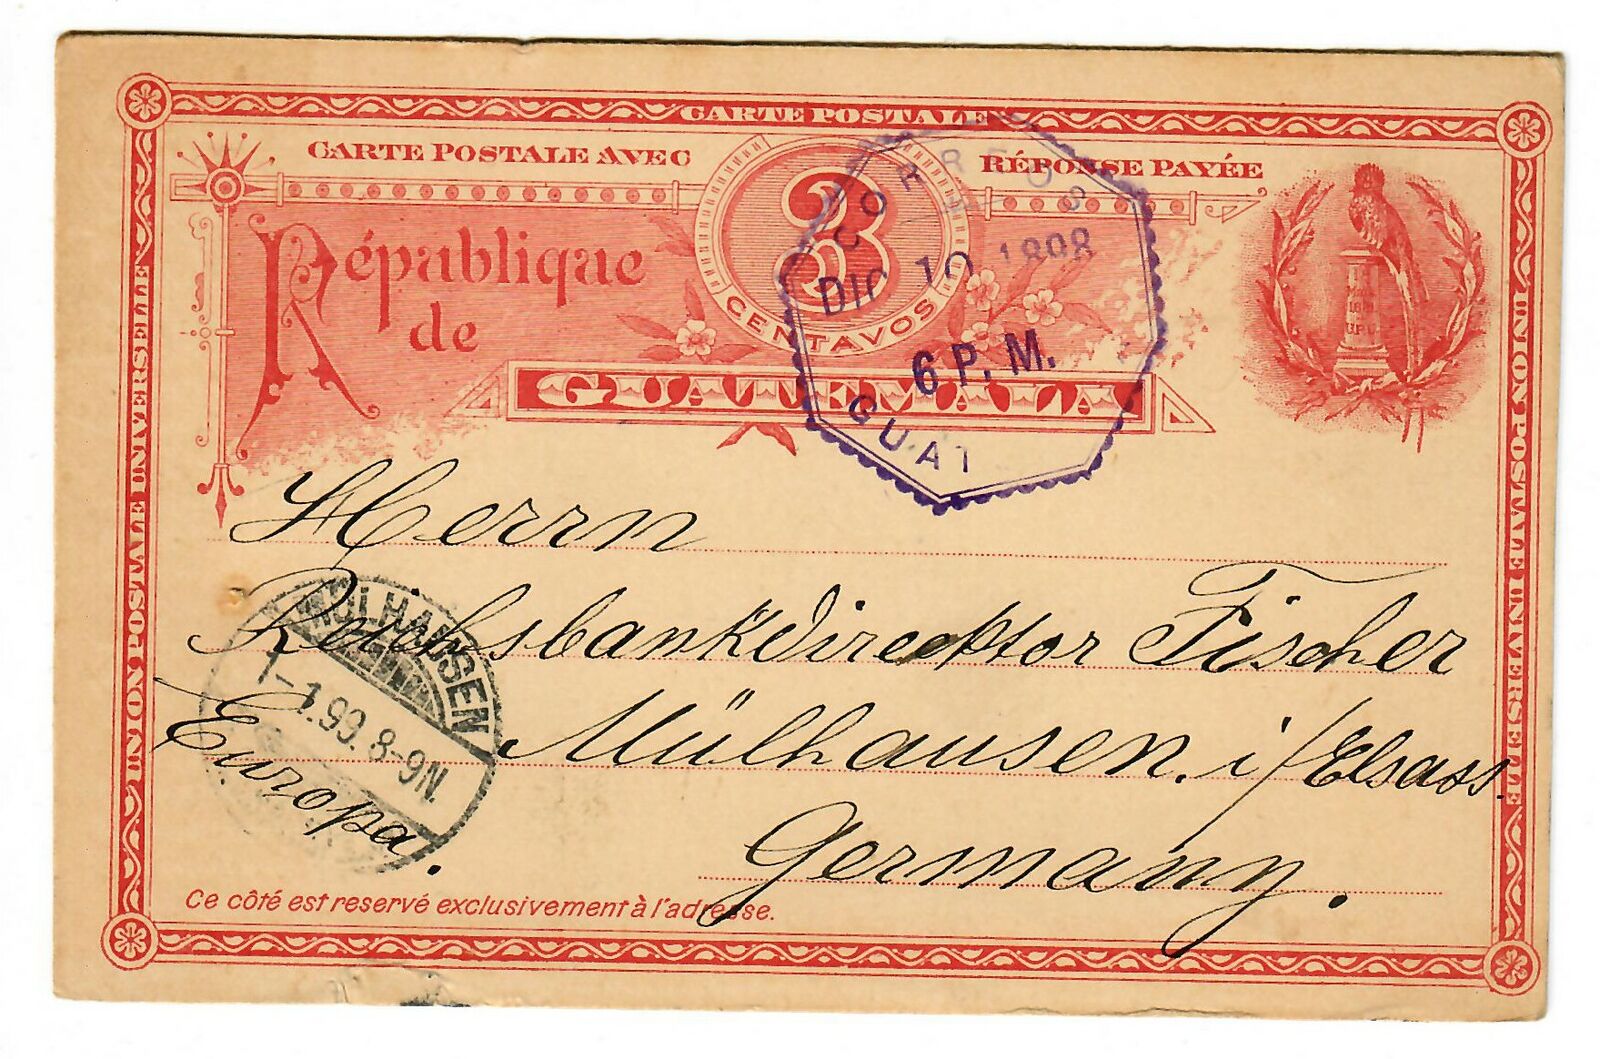 CARTE POSTALE
CARTE POSTALE AVEC RÉPONSE PAYÉE
République
de
3
CENTAVOS
GUATEMALA
CORREOS
DIC 10 1898
6 P. M.
GUAT
UNION POSTALE UNIVERSELLE
UNION POSTALE UNIVERSELLE
Herrn
Reichsbankdirecktor Fischer
Mülhausen. i/Elsass.
Europa.
Germany.
MÜLHAUSEN
1-1.99. 8-9N.
Ce côté est reservé exclusivement à l'adresse.